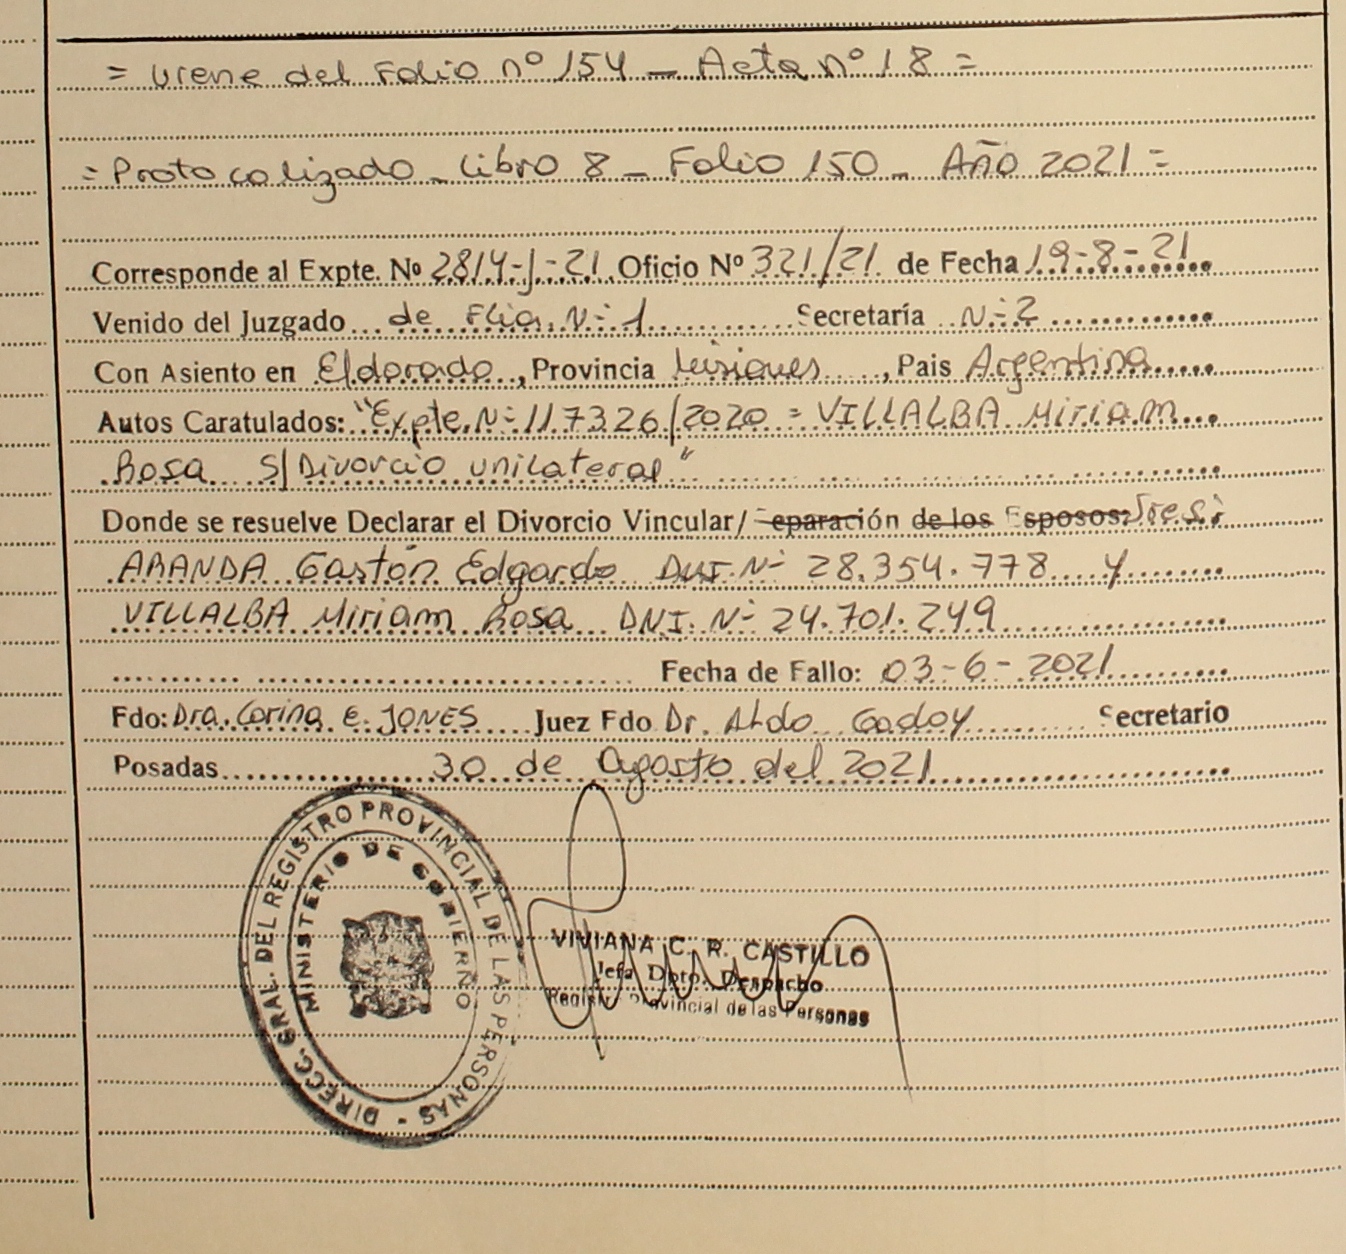 = viene del Folio nº 154 _ Acta nº 18 =
= Protocolizado _ Libro 8 _ Folio 150 _ Año 2021 =
Corresponde al Expte. Nº 2814-J-21 Oficio Nº 321/21 de Fecha 19-8-21
Venido del Juzgado de Flia. Nº 1 Secretaría Nº 2
Con Asiento en Eldorado, Provincia Misiones, Pais Argentina
Autos Caratulados: "Expte. Nº 117326/2020 = VILLALBA Miriam
Rosa S/Divorcio unilateral"
Donde se resuelve Declarar el Divorcio Vincular/ Separación de los Esposos: Sres:
ARANDA Gastón Edgardo DNI Nº 28.354.778 y
VILLALBA Miriam Rosa DNI. Nº 24.701.249
Fecha de Fallo: 03-6-2021
Fdo: Dra. Corina E. JONES Juez Fdo Dr. Aldo Godoy Secretario
Posadas 30 de Agosto del 2021
DIRECC. GRAL. DEL REGISTRO PROVINCIAL DE LAS PERSONAS -
MINISTERIO DE GOBIERNO
VIVIANA C. R. CASTILLO
Jefa Dpto. Despacho
Registro Provincial de las Personas